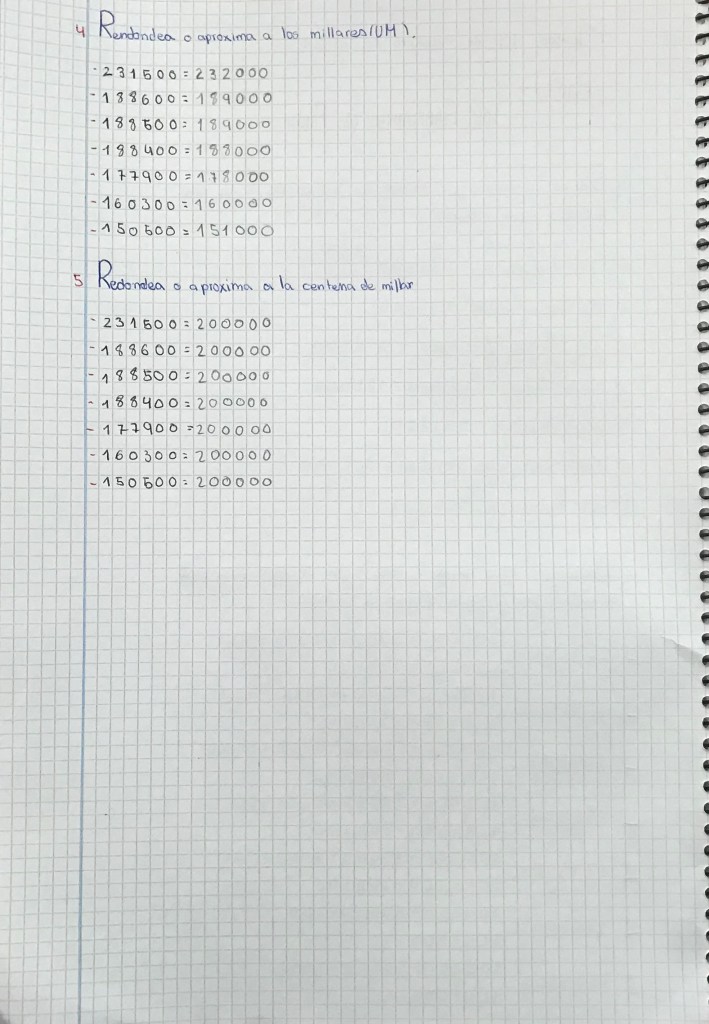 4 Rendondea o aproxima a los millares(UM).
-231500=232000
-188600=189000
-188500=189000
-188400=188000
-177900=178000
-160300=160000
-150500=151000
5 Redondea o aproxima a la centena de millar
-231500=200000
-188600=200000
-188500=200000
-188400=200000
-177900=200000
-160300=200000
-150500=200000